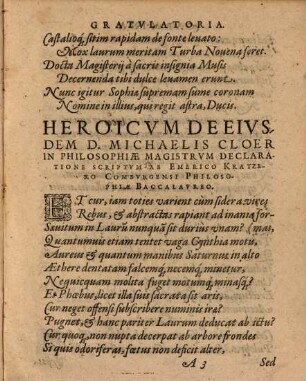 GRATVLATORIA.
Castalioq́; sitim rapidam de fonte levato:
Mox laurum meritam Turba Novena feret.
Docta Magisterij à sacris insignia Musis
Decernenda tibi dulce levamen erunt.
Nunc igitur Sophiæ supremam sume coronam
Nomine in illius, qui regit astra, Ducis.
HEROICVM DE EIVS-
DEM D. MICHAELIS CLOER
IN PHILOSOPHIÆ MAGISTRVM DECLARA-
TIONE SCRIPTVM AB EMERICO KRATZE-
RO COMBVRGENSI PHILOSO-
PHIÆ BACCALAVREO.
ET cur, iam toties varient cùm sidera vices
Rebus, & abstractas rapiant ad inania for-
Sævitum in Laurũ nunquã sit durius vnam? (mas,
Quantumuis etiam tentet vaga Cynthia motu,
Aureus & quantum manibus Saturnus in alto
Æthere dentatam falcemq́; necemq́; minetur,
Nequicquam molita fuget motumq́; minasq́;?
Et Phœbus, licet illa suis sacrata sit aris,
Cur neget offensi subscribere numini ira?
Pugnet, & hanc pariter Laurum deducat ab ictu?
Cur quoq́; non nupta decerpat ab arbore frondes
Si quis odoriferas, fœtus non deficit alter,
A 3 Sed